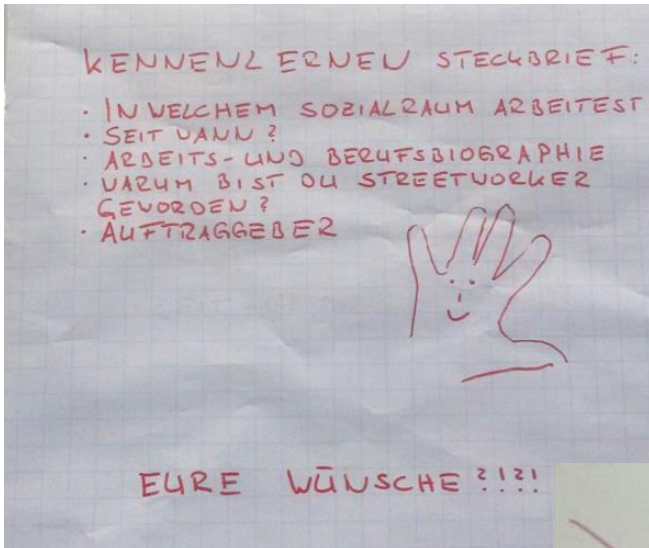 KENNENLERNEN STECKBRIEF:
· IN WELCHEM SOZIALRAUM ARBEITEST
· SEIT WANN?
· ARBEITS- UND BERUFSBIOGRAPHIE
· WARUM BIST DU STREETWORKER
GEWORDEN?
· AUFTRAGGEBER
EURE WÜNSCHE?!?!